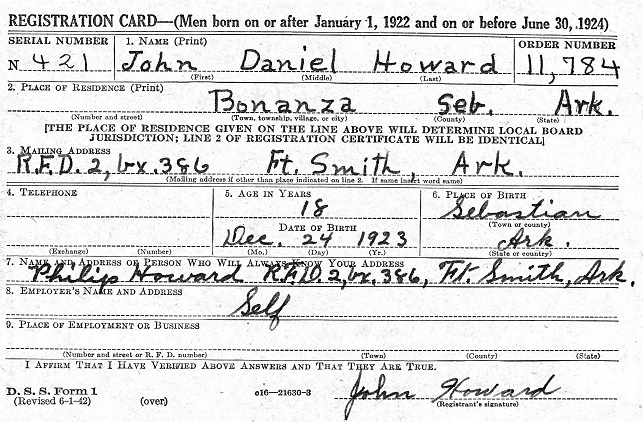 REGISTRATION CARD—(Men born on or after January 1, 1922 and on or before June 30, 1924)
SERIAL NUMBER 1. NAME (Print) ORDER NUMBER
N 421 John Daniel Howard 11,784
(First) (Middle) (Last)
2. PLACE OF RESIDENCE (Print)
Bonanza Seb. Ark.
(Number and street) (Town, township, village, or city) (County) (State)
[THE PLACE OF RESIDENCE GIVEN ON THE LINE ABOVE WILL DETERMINE LOCAL BOARD
JURISDICTION; LINE 2 OF REGISTRATION CERTIFICATE WILL BE IDENTICAL]
3. MAILING ADDRESS
R.F.D. 2, bx. 386 Ft. Smith, Ark.
(Mailing address if other than place indicated on line 2. If same insert word same)
4. TELEPHONE 5. AGE IN YEARS 6. PLACE OF BIRTH
18 Sebastian
(Town or county)
DATE OF BIRTH
Dec. 24 1923 Ark.
(Exchange) (Number) (Mo.) (Day) (Yr.) (State or country)
7. NAME AND ADDRESS OF PERSON WHO WILL ALWAYS KNOW YOUR ADDRESS
Philip Howard R.F.D. 2, bx. 386, Ft. Smith, Ark.
8. EMPLOYER'S NAME AND ADDRESS
Self
9. PLACE OF EMPLOYMENT OR BUSINESS
(Number and street or R. F. D. number) (Town) (County) (State)
I AFFIRM THAT I HAVE VERIFIED ABOVE ANSWERS AND THAT THEY ARE TRUE.
D. S. S. Form 1
(Revised 6-1-42) (over) c16—21630-3 John Howard
(Registrant's signature)